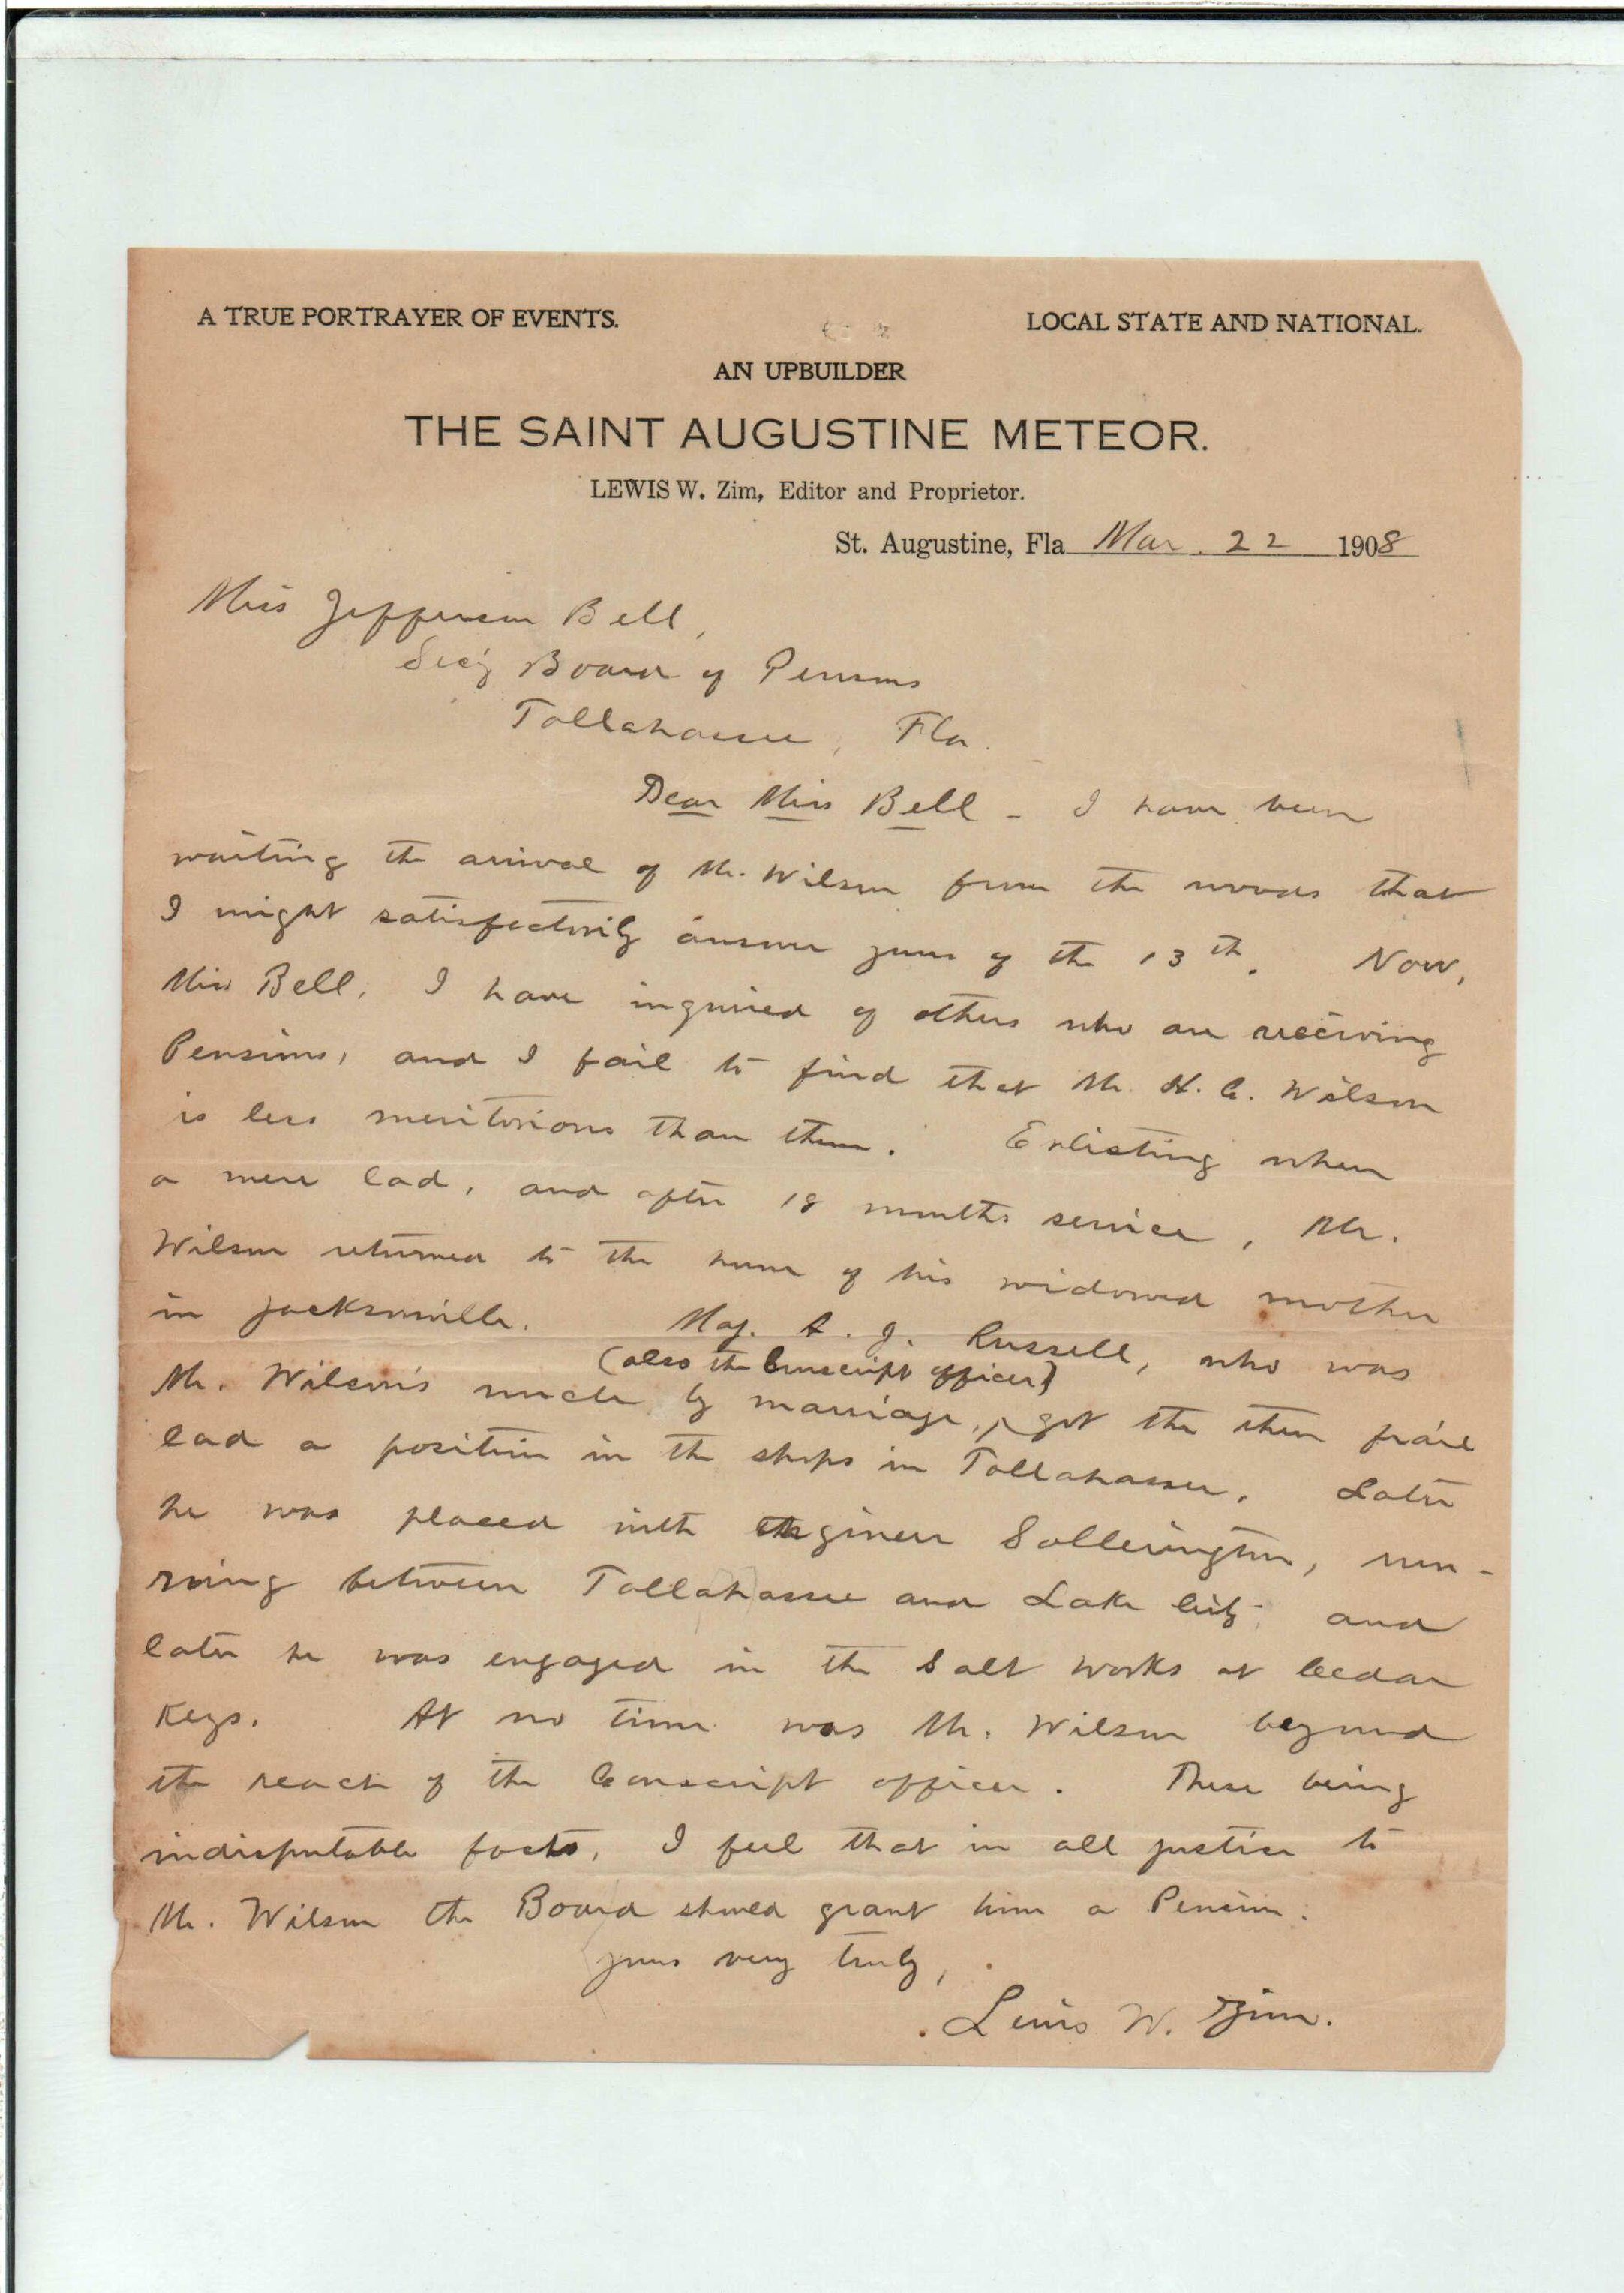 A TRUE PORTRAYER OF EVENTS. LOCAL STATE AND NATIONAL.
AN UPBUILDER
THE SAINT AUGUSTINE METEOR.
LEWIS W. Zim, Editor and Proprietor.
St. Augustine, Fla Mar. 22 1908
Miss Jefferson Bell,
Sec'y Board of Pensions
Tallahassee, Fla.
Dear Miss Bell - I have been
waiting the arrival of Mr. Wilson from the woods that
I might satisfactorily answer yours of the 13th. Now,
Miss Bell, I have inquired of others who are receiving
Pensions, and I fail to find that Mr. H. C. Wilson
is less meritorious than them. Enlisting when
a mere lad, and after 18 months service, Mr.
Wilson returned to the home of his widowed mother
in Jacksonville. Maj. A. J. Russell, who was
(also the Conscript officer)
Mr. Wilson's uncle by marriage, got the then frail
lad a position in the shops in Tallahassee. Later
he was placed with Engineer, run-
ning between Tallahassee and Lake City, and
later he was engaged in the Salt works at Cedar
Keys. At no time was Mr. Wilson beyond
the reach of the Conscript officer. These being
indisputable facts, I feel that in all justice to
Mr. Wilson the Board should grant him a Pension.
yours very truly,
Lewis W. Zim.